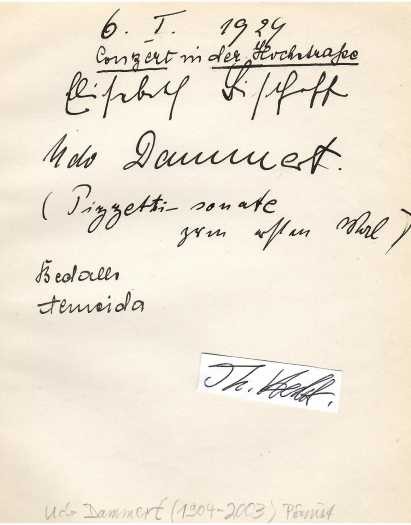 6. I. 1929
Conzert in der Hochstraße
Elisabeth Bischoff
Udo Dammert.
( Pizzetti-sonate
zum ersten Mal )
Bedalli
Almeida
Th.
Udo Dammert (1904-2003) Pianist